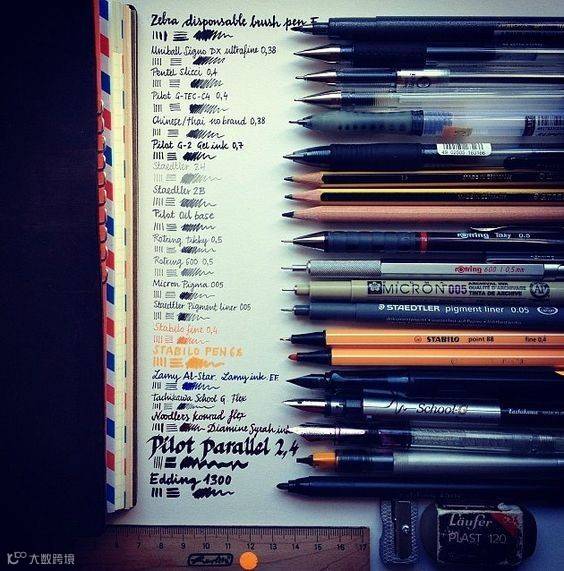 Zebra disposable brush pen F
Uniball Signo DX ultrafine 0,38
Pentel Slicci 0,4
Pilot G-TEC-C4 0,4
Chinese/thai no brand 0,38
Pilot G-2 Gel ink 0,7
Staedtler 2H
Staedtler 2B
Pilot Oil base
Rotring tikky 0,5
Rotring 600 0,5
Micron Pigma 005
Staedtler Pigment liner 005
Stabilo fine 0,4
STABILO PEN 68
Lamy Al-Star. Lamy ink. EF
Tachikawa School G. Flex
Noodlers Konrad flex
Diamine Syrah ink
Pilot parallel 2,4
Edding 1300
rotring Tikky 0.5
rotring 600 | 0,5mm
MICRON 005 ARCHIVAL INK
QUALITÉ D'ARCHIVES
TINTA DE ARCHIVO
STAEDTLER pigment liner 0.05
STABILO point 88 fine 0,4
School G
Tachikawa
Läufer
PLAST 120
1 2 3 4 5 6 7 8 9 10 11 12 13 14 15 16 17
大数跨境